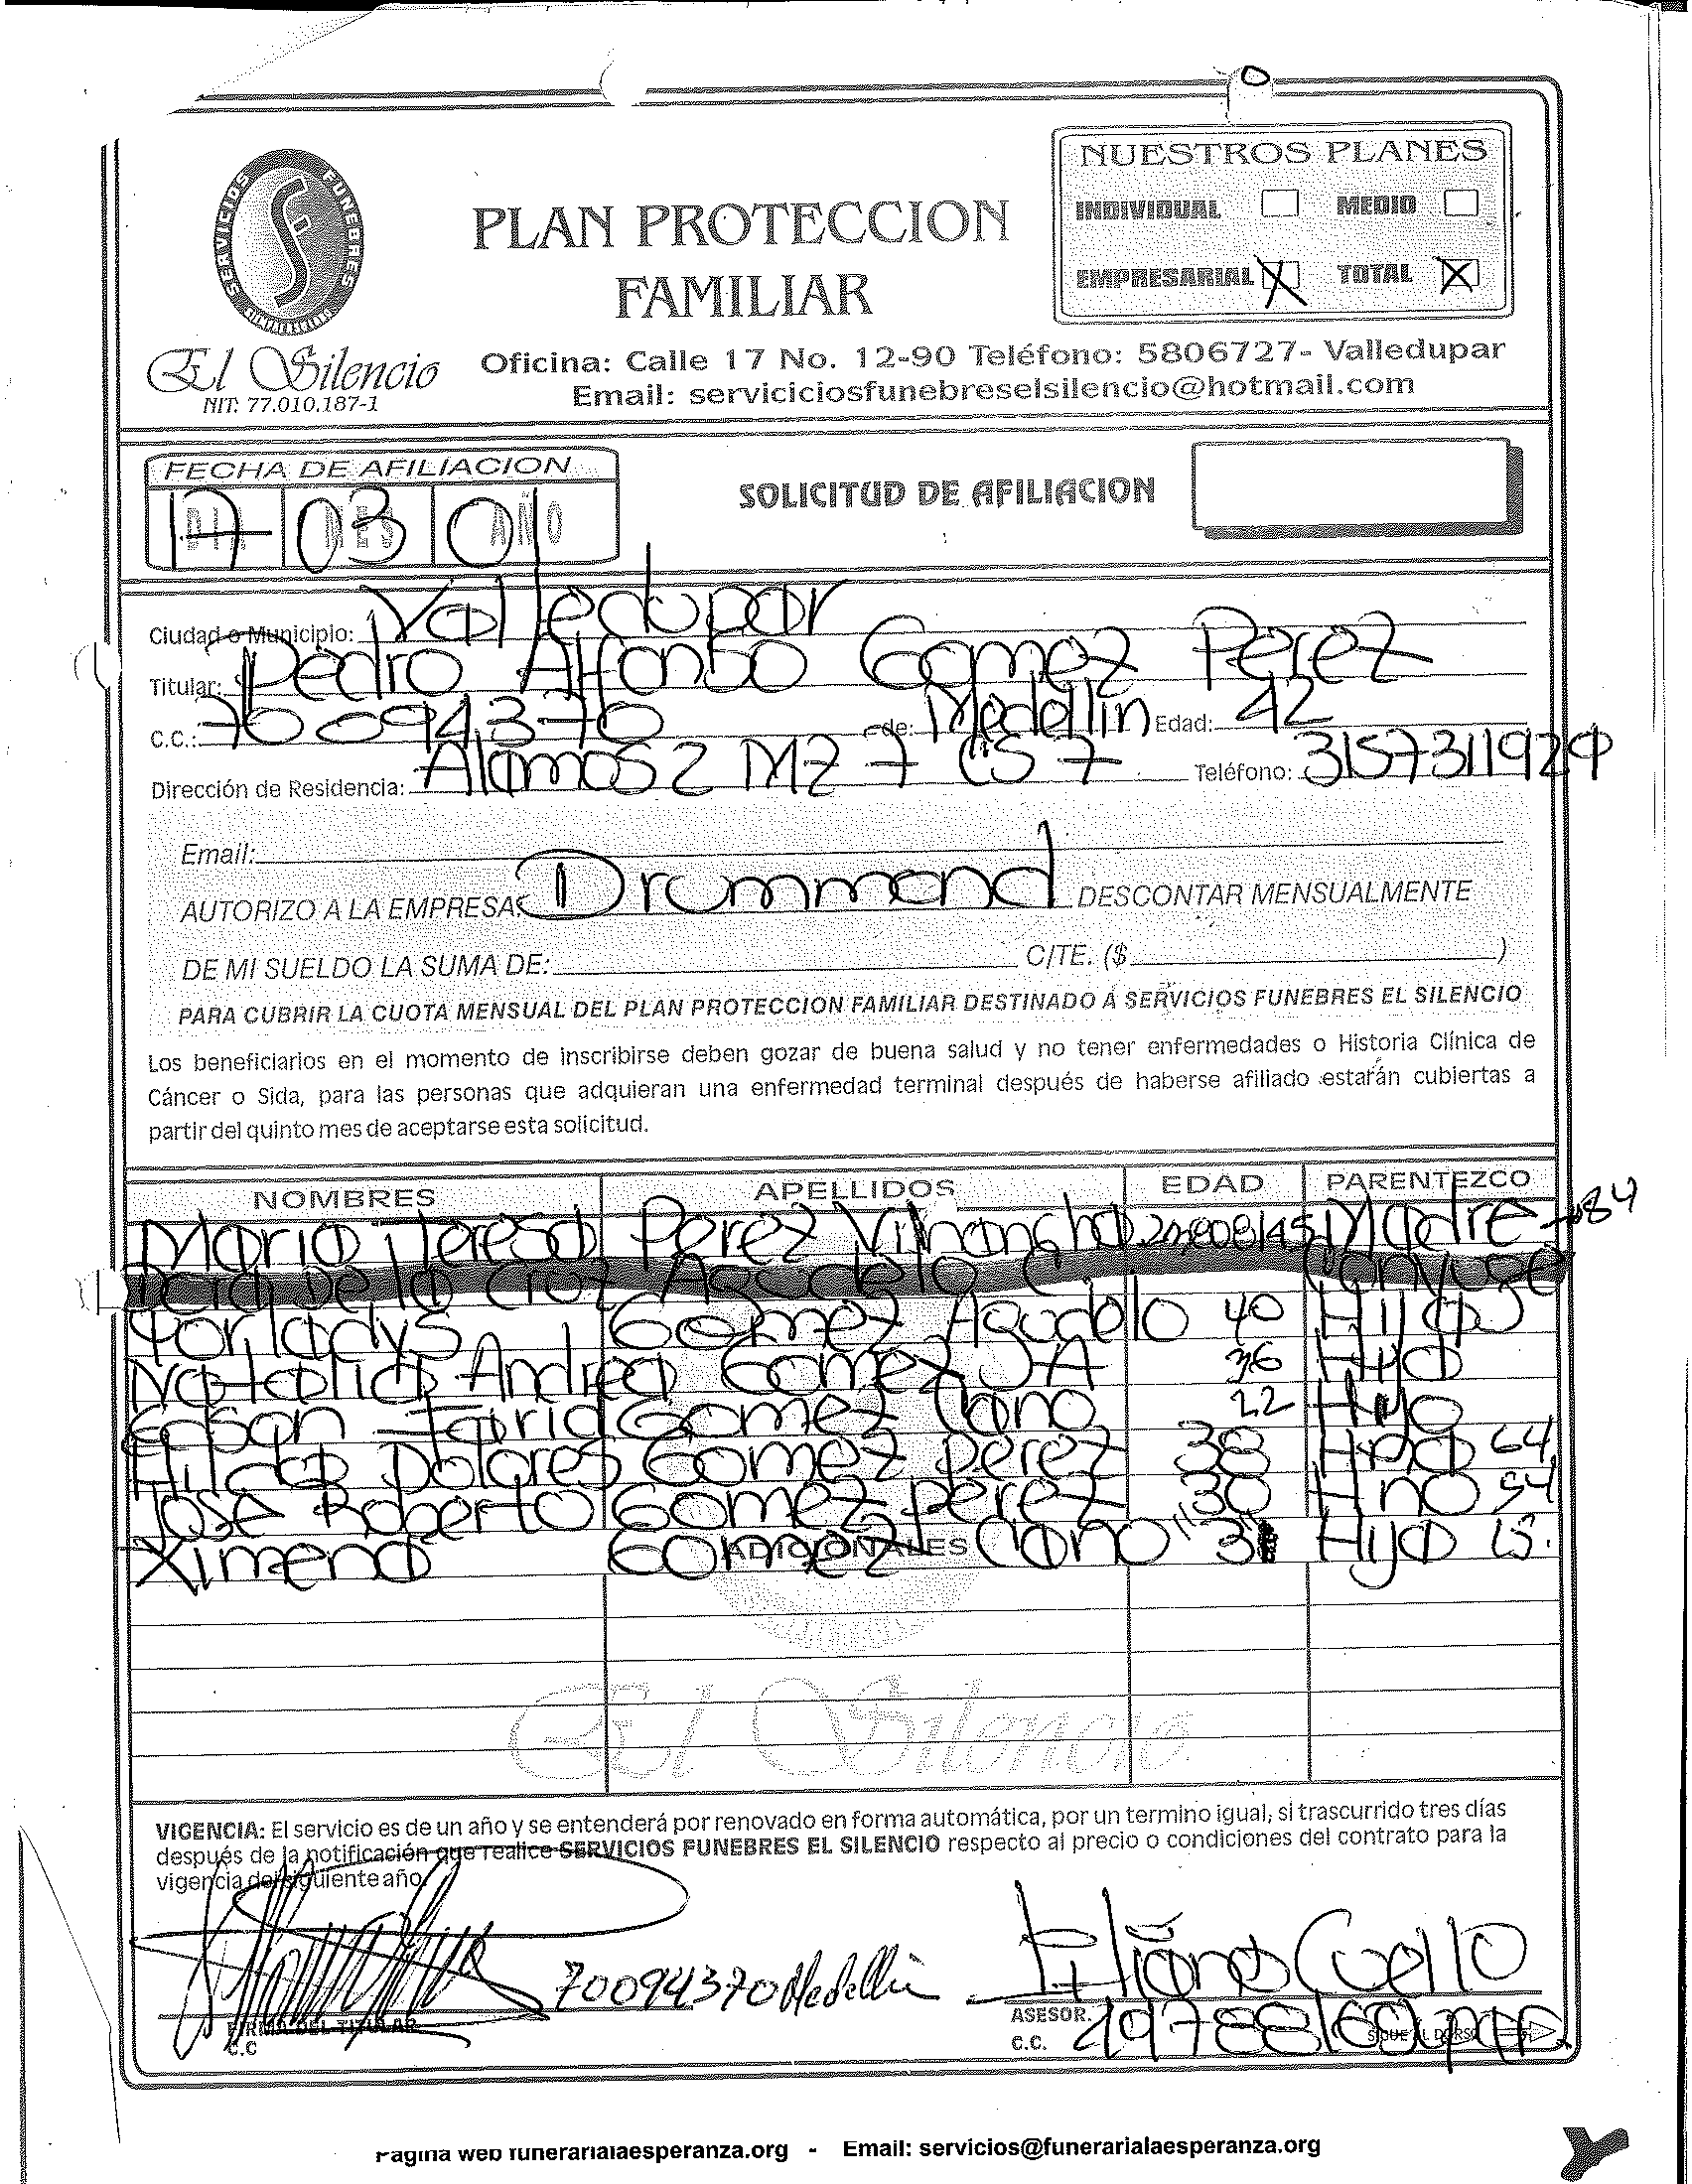 NUESTROS PLANES
INDIVIDUAL MEDIO
EMPRESARIAL X TOTAL X
SERVICIOS FUNEBRES
PLAN PROTECCION
FAMILIAR
El Silencio
NIT: 77.010.187-1
Oficina: Calle 17 No. 12-90 Teléfono: 5806727- Valledupar
Email: serviciciosfunebreselsilencio@hotmail.com
FECHA DE AFILIACION
DIA MES AÑO
17 03 01
SOLICITUD DE AFILIACION
Ciudad o Municipio: Valledupar
Titular: Pedro Alfonso Gomez Perez
C.C.: 70094370 de: Medellin Edad: 42
Dirección de Residencia: Alamos 2 MZ 7 CS 7 Teléfono: 3157311929
Email:
AUTORIZO A LA EMPRESA: Drummond DESCONTAR MENSUALMENTE
DE MI SUELDO LA SUMA DE: C/TE. ($ )
PARA CUBRIR LA CUOTA MENSUAL DEL PLAN PROTECCION FAMILIAR DESTINADO A SERVICIOS FUNEBRES EL SILENCIO
Los beneficiarios en el momento de inscribirse deben gozar de buena salud y no tener enfermedades o Historia Clínica de
Cáncer o Sida, para las personas que adquieran una enfermedad terminal después de haberse afiliado estarán cubiertas a
partir del quinto mes de aceptarse esta solicitud.
NOMBRES APELLIDOS EDAD PARENTEZCO
Maria Teresa Perez Madre 84
De la Cruz Agudelo Conyuge
Gomez Agudelo 40 Hija
Andrea Gomez 36 Hija
Gomez Cano 22 Hijo
Hilda Dolores Gomez Perez 38 Hna 64
Jose Roberto Gomez Perez 30 Hno 54
ADICIONALES
Ximena Gomez Cano 3 Hija 15.
El Silencio
VIGENCIA: El servicio es de un año y se entenderá por renovado en forma automática, por un termino igual, si trascurrido tres días
después de la notificación que realice SERVICIOS FUNEBRES EL SILENCIO respecto al precio o condiciones del contrato para la
vigencia del siguiente año.
70094370 Medellin
Eliana Cuello
FIRMA DEL TITULAR
C.C
ASESOR.
C.C. 49788160
SIGUE AL DORSO
Pagina web funerarialaesperanza.org - Email: servicios@funerarialaesperanza.org